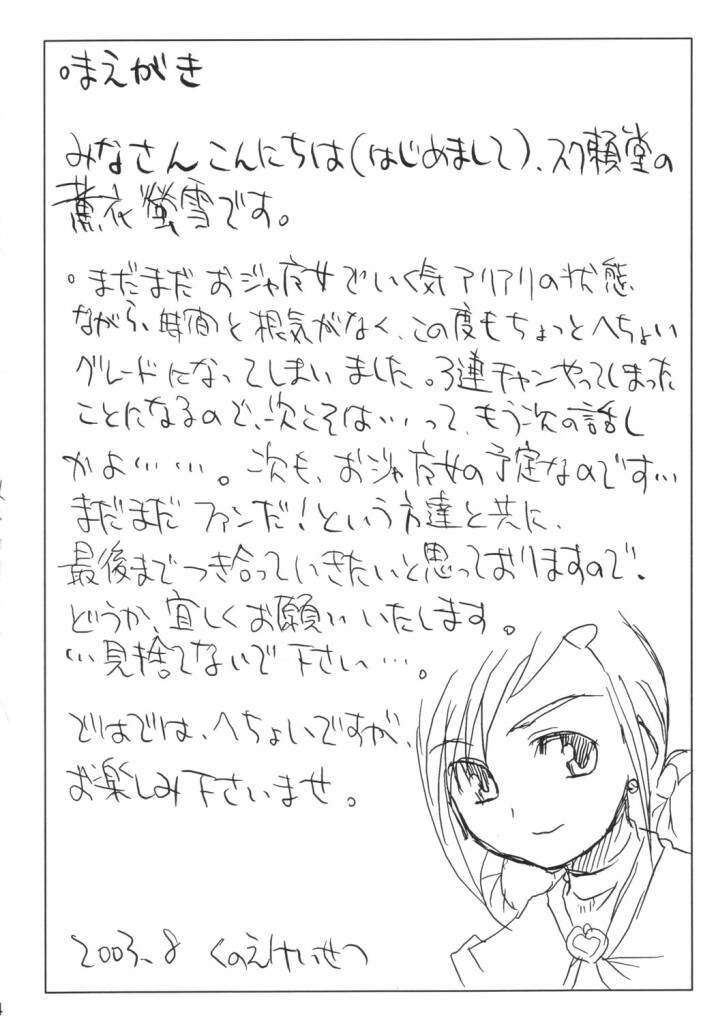 まえがき
みなさんこんにちは(はじめまして)、スタ頼堂の
薫衣螢雪です。
。まだまだおジャ魔女でいく気アリアリの状態
ながら、時間と根気がなく、この度もちょっとへちょい
グレードになってしまいました。3連チャンやってしまった
ことになるので、次こそは…って、もう次の話し
かよ………。次も、おジャ魔女の予定なのです…
まだまだファンだ!という方達と共に、
最後までつき合っていきたいと思っておりますので、
どうか、宜しくお願いいたします。
…見捨てないで下さい…。
ではでは、へちょいですが、
お楽しみ下さいませ。
2003.8 くのえけいせつ